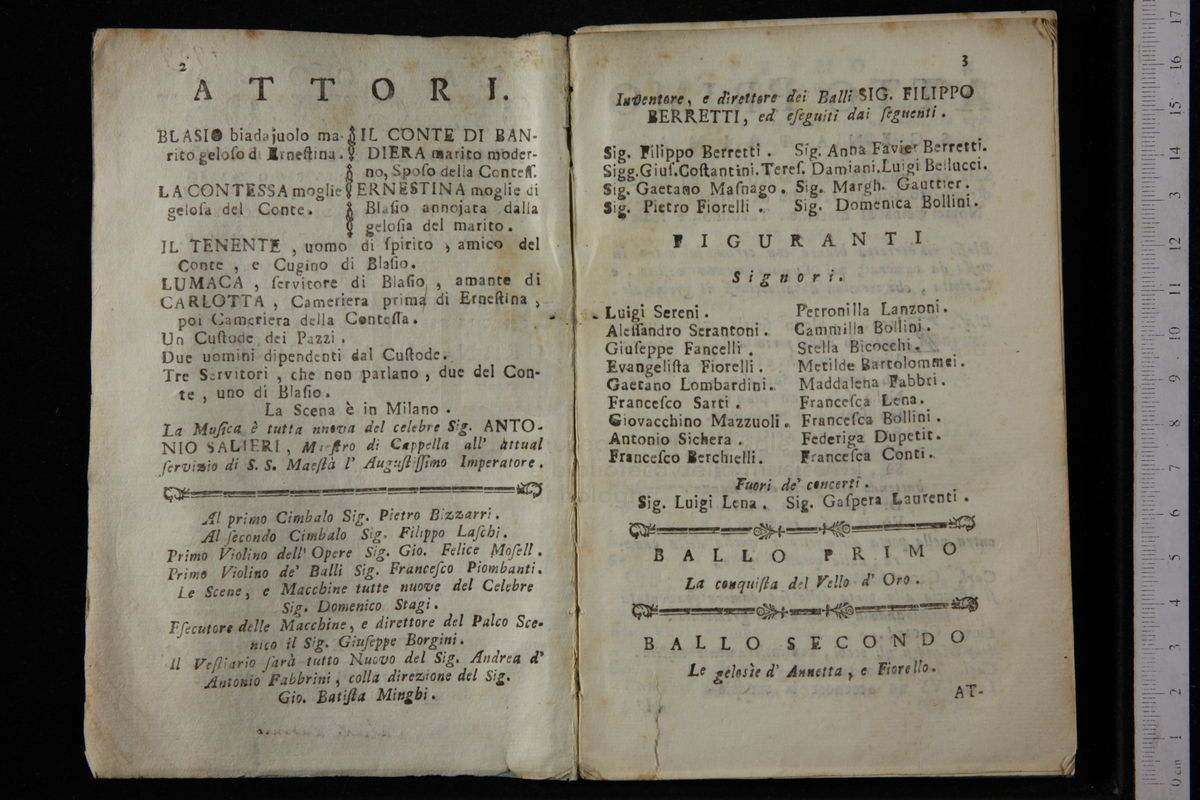 2
ATTORI.
BLASIO biadajuolo ma-
rito geloſo di Erneſtina.
LA CONTESSA moglie
geloſa del Conte.
IL CONTE DI BAN-
DIERA marito moder-
no, Spoſo della Conteſſ.
ERNESTINA moglie di
Blaſio annojata dalla
geloſia del marito.
IL TENENTE, uomo di ſpirito, amico del
Conte, e Cugino di Blaſio.
LUMACA, ſervitore di Blaſio, amante di
CARLOTTA, Cameriera prima di Erneſtina,
poi Cameriera della Conteſſa.
Un Cuſtode dei Pazzi.
Due uomini dipendenti dal Cuſtode.
Tre Servitori, che non parlano, due del Con-
te, uno di Blaſio.
La Scena è in Milano.
La Muſica è tutta nuova del celebre Sig. ANTO-
NIO SALIERI, Mieſtro di Cappella all' attual
ſervizio di S. S. Maeſtà l' Auguſtiſſimo Imperatore.
Al primo Cimbalo Sig. Pietro Bizzarri.
Al ſecondo Cimbalo Sig. Filippo Laſchi.
Primo Violino dell' Opere Sig. Gio. Felice Moſell.
Primo Violino de' Balli Sig. Franceſco Piombanti.
Le Scene, e Macchine tutte nuove del Celebre
Sig. Domenico Stagi.
Eſecutore delle Macchine, e direttore del Palco Sce-
nico il Sig. Giuſeppe Borgini.
Il Veſtiario ſarà tutto Nuovo del Sig. Andrea d'
Antonio Fabbrini, colla direzione del Sig.
Gio. Batiſta Minghi.
3
Inventore, e direttore dei Balli SIG. FILIPPO
BERRETTI, ed eſeguiti dai ſeguenti.
Sig. Filippo Berretti. Sig. Anna Favier Berretti.
Sigg. Giuſ. Coſtantini. Tereſ. Damiani. Luigi Bellucci.
Sig. Gaetano Maſnago. Sig. Margh. Gauttier.
Sig. Pietro Fiorelli. Sig. Domenica Bollini.
FIGURANTI
Signori.
Luigi Sereni. Petronilla Lanzoni.
Aleſſandro Serantoni. Cammilla Bollini.
Giuſeppe Fancelli. Stella Bicocchi.
Evangeliſta Fiorelli. Metilde Bartolommei.
Gaetano Lombardini. Maddalena Fabbri.
Franceſco Sarti. Franceſca Lena.
Giovacchino Mazzuoli. Franceſca Bollini.
Antonio Sichera. Federiga Dupetit.
Franceſco Berchielli. Franceſca Conti.
Fuori de' concerti.
Sig. Luigi Lena. Sig. Gaſpera Laurenti.
BALLO PRIMO
La conquiſta del Vello d' Oro.
BALLO SECONDO
Le gelosìe d' Annetta, e Fiorello.
AT-
0 cm 1 2 3 4 5 6 7 8 9 10 11 12 13 14 15 16 17